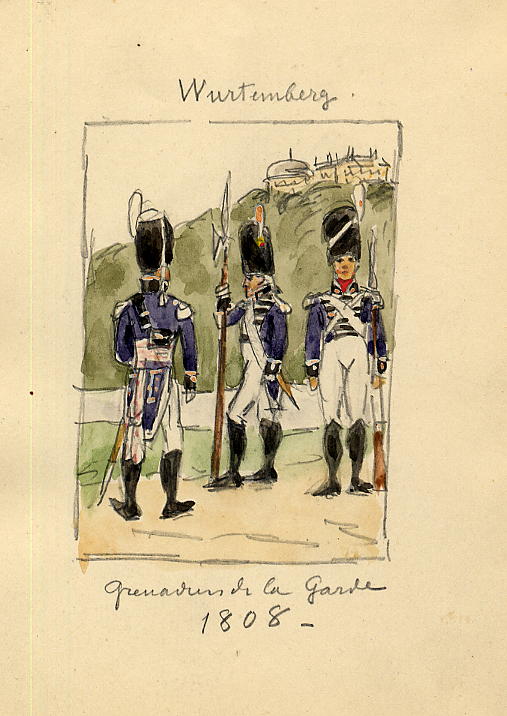 Wurtemberg.
Grenadiers de la Garde
1808_